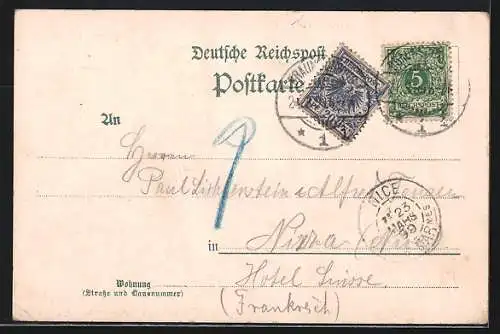 Deutsche Reichspost
Postkarte
5
1
1
An
Herren
Paul Lichtenstein & Alfred
NICE
23
MARS
99
in Nizza
Hotel Suisse
(Frankreich)
Wohnung
(Straße und Hausnummer)